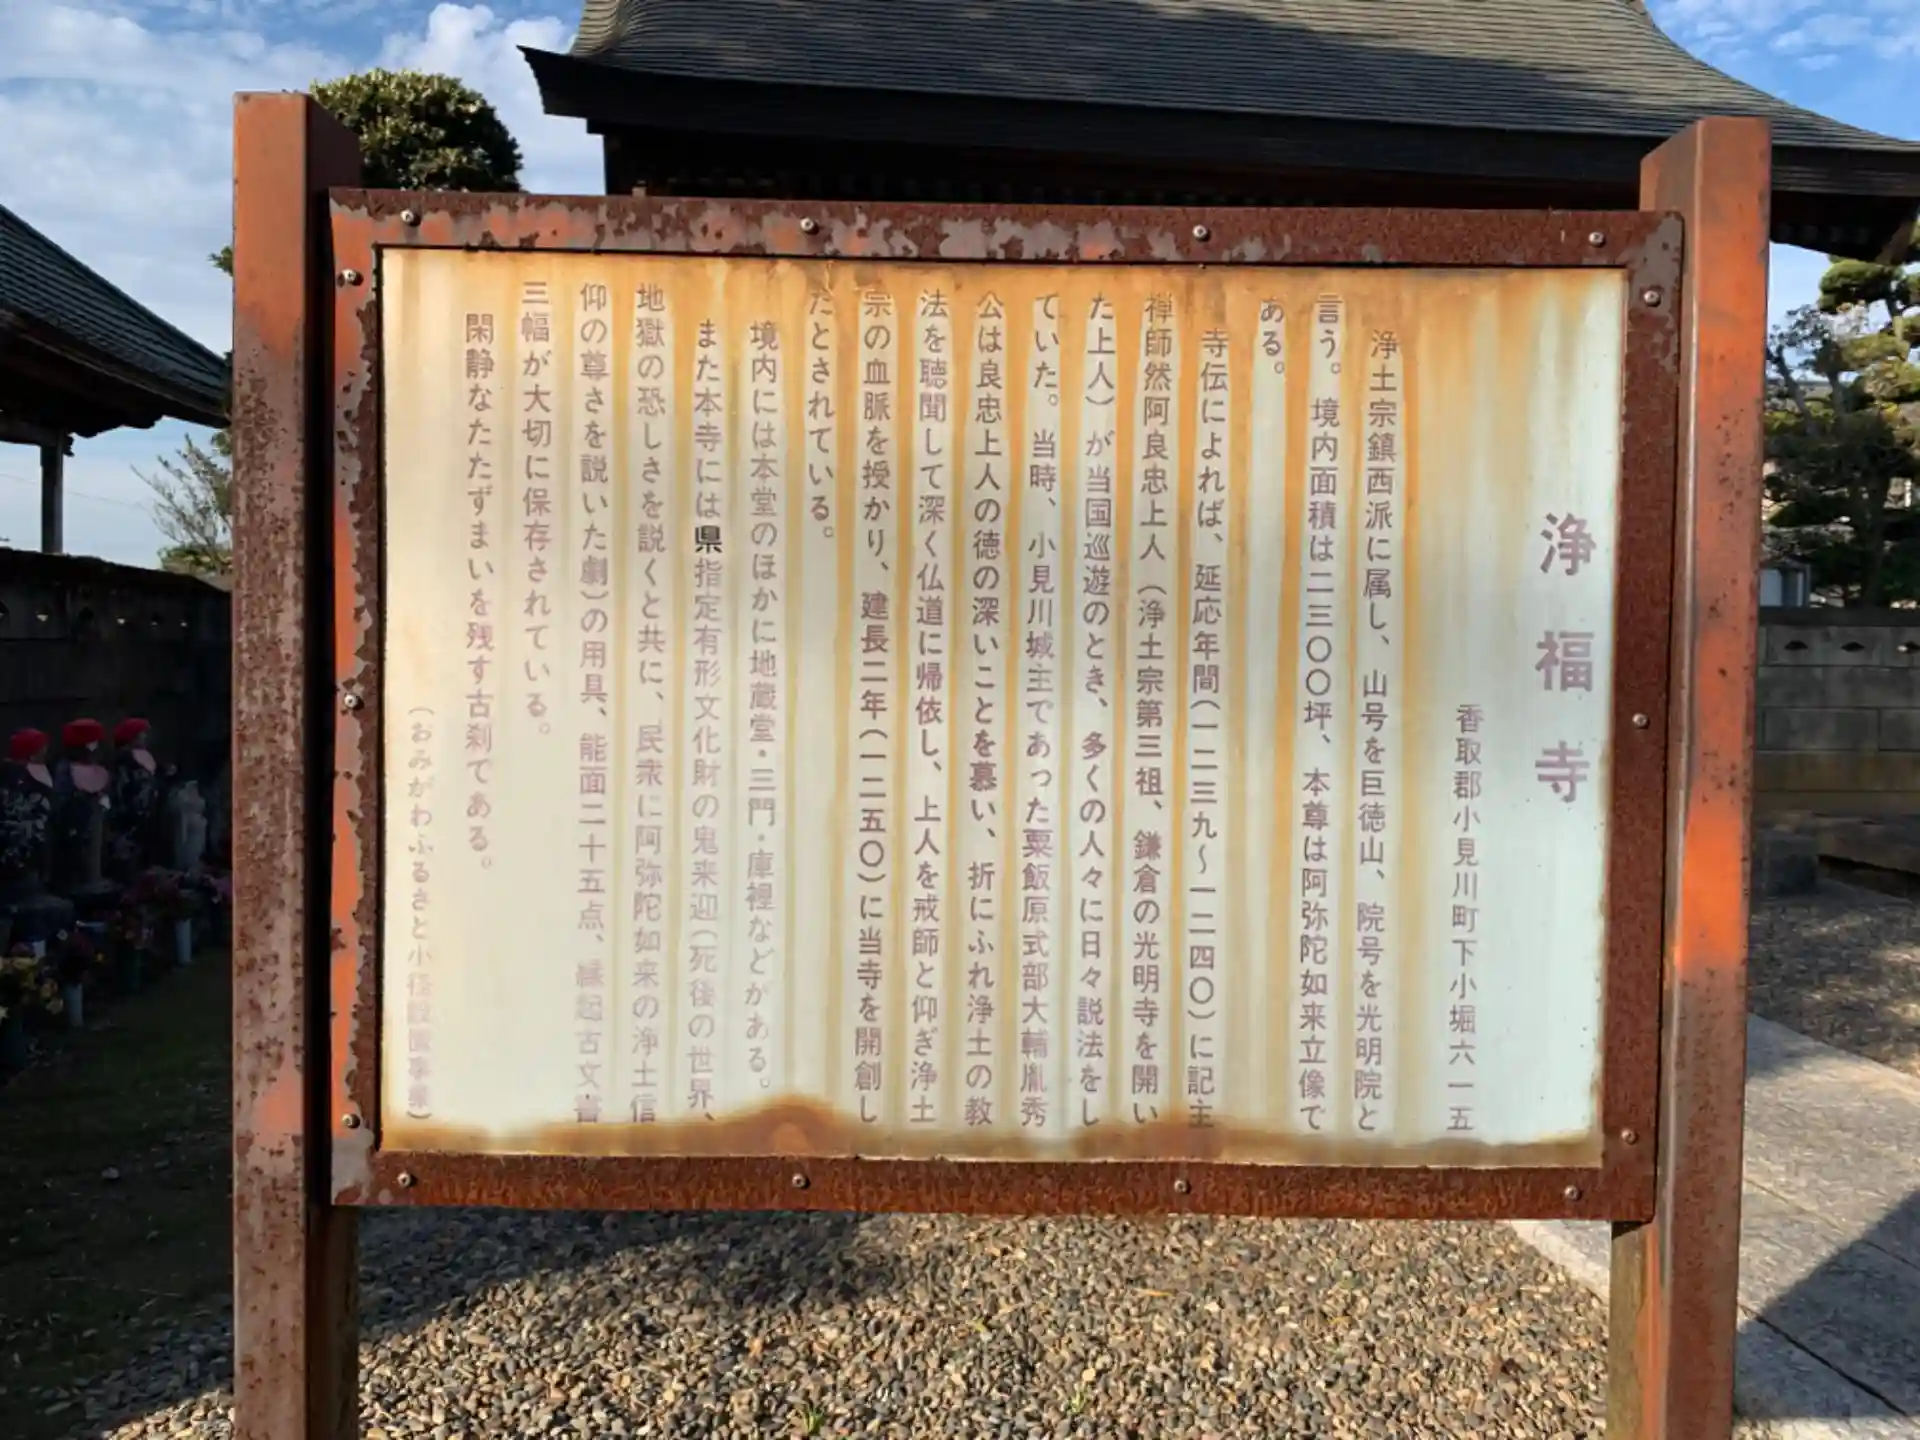 浄福寺
香取郡小見川町下小堀六一五
浄土宗鎮西派に属し、山号を巨徳山、院号を光明院と
言う。境内面積は二三〇〇坪、本尊は阿弥陀如来立像で
ある。
寺伝によれば、延応年間(一二三九～一二四〇)に記主
禅師然阿良忠上人(浄土宗第三祖、鎌倉の光明寺を開い
た上人)が当国巡遊のとき、多くの人々に日々説法をし
ていた。当時、小見川城主であった粟飯原式部大輔胤秀
公は良忠上人の徳の深いことを慕い、折にふれ浄土の教
法を聴聞して深く仏道に帰依し、上人を戒師と仰ぎ浄土
宗の血脈を授かり、建長二年(一二五〇)に当寺を開創し
たとされている。
境内には本堂のほかに地蔵堂・三門・庫裡などがある。
また本寺には県指定有形文化財の鬼来迎(死後の世界、
地獄の恐しさを説くと共に、民衆に阿弥陀如来の浄土信
仰の尊さを説いた劇)の用具、能面二十五点、縁起古文書
三幅が大切に保存されている。
閑静なたたずまいを残す古刹である。
(おみがわふるさと小径設置事業)